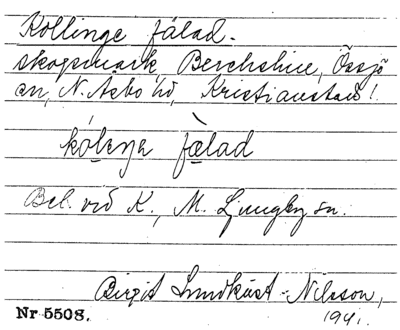 Kollinge fälad.
skogsmark Beckshus, Össjö
sn, N. Åsbo hd, Kristianstad l.
kólenge fälad
Bel. vid K., M. Ljungby sn.
Birgit Lundkvist-Nilsson,
1941.
Nr 5508.